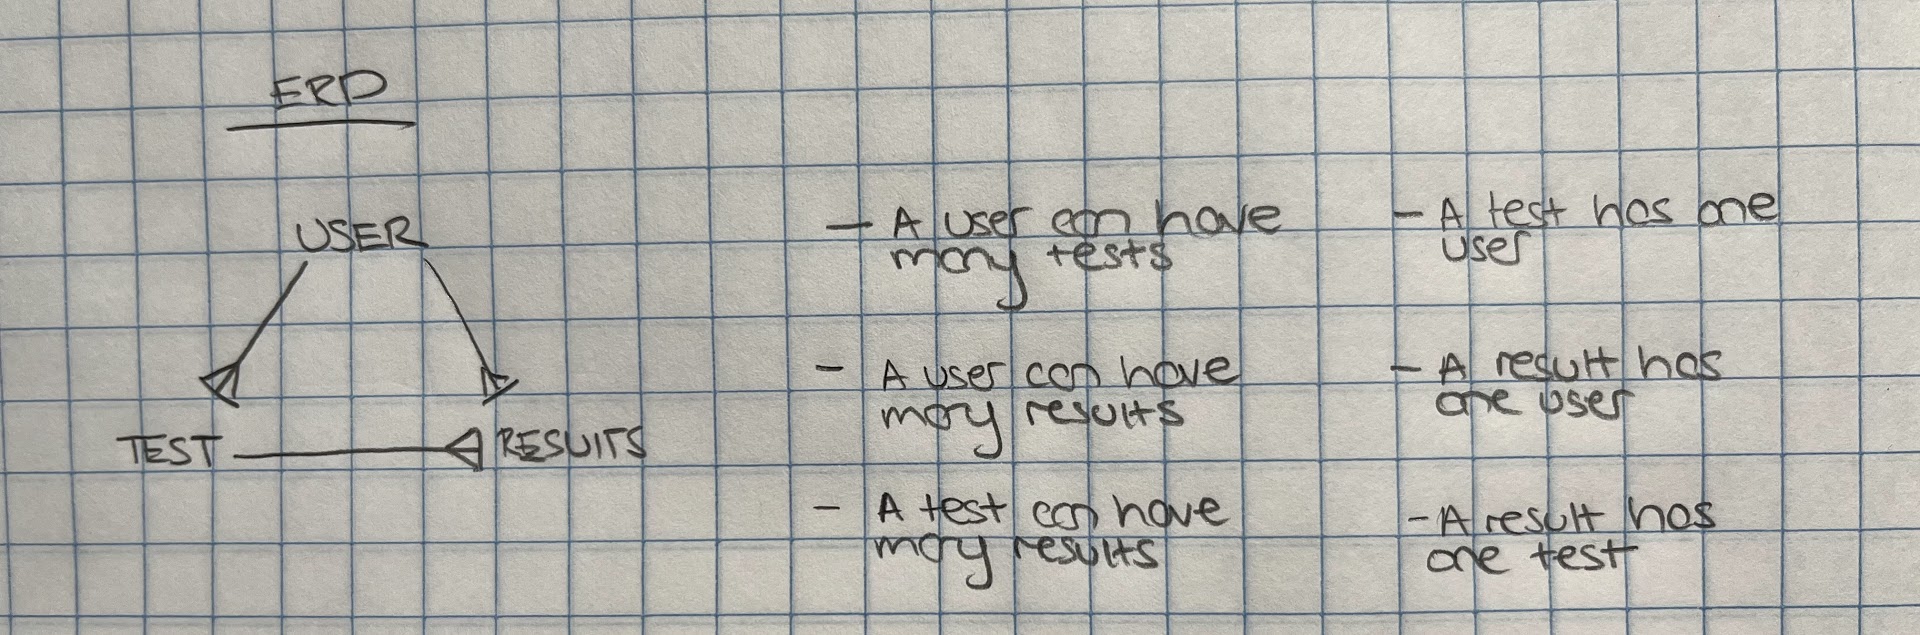 ERD
USER
TEST
RESULTS
- A user can have
many tests
- A user can have
many results
- A test can have
many results
- A test has one
user
- A result has
one user
- A result has
one test